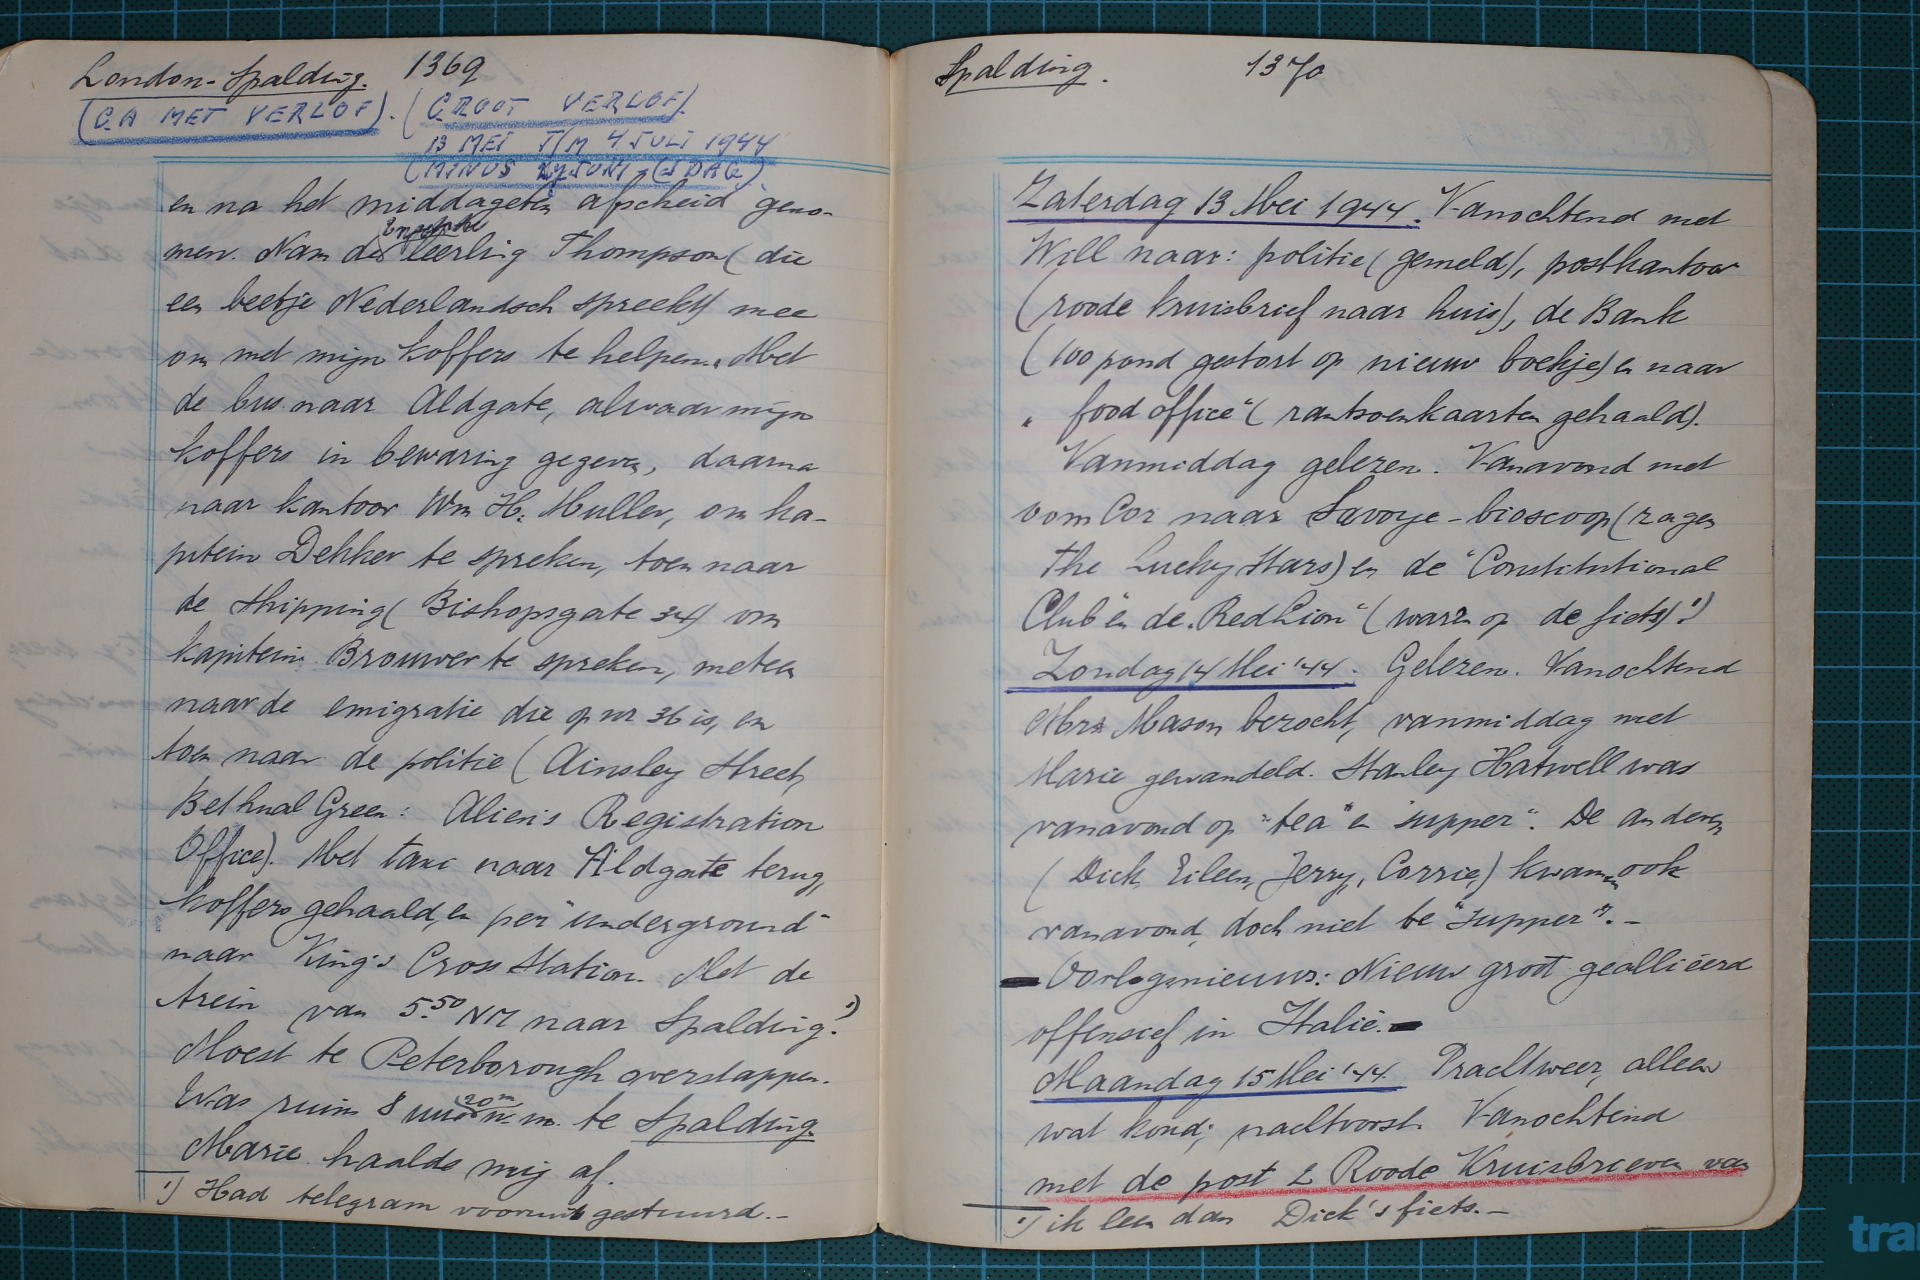 London-Spalding. 1369
(GA MET VERLOF). (GROOT VERLOF).
13 MEI T/M 4 JULI 1944
(MINUS JUNI (1 DAG).
en na het middageten afscheid geno-
men. Nam den Engelsche leerling Thompson (die
een beetje Nederlandsch spreekt) mee
om met mijn koffers te helpen. Met
de bus naar Aldgate, alwaar mijn
koffers in bewaring gegeven, daarna
naar kantoor Wm H. Muller, om ka-
pitein Dekker te spreken, toen naar
de Shipping (Bishopsgate 34) om
kapitein Brouwer te spreken, meteen
naar de emigratie die op nr 36 is, en
toen naar de politie (Ainsley Street,
Bethnal Green: Alien's Registration
Office). Met taxi naar Aldgate terug,
koffers gehaald, en per "underground"
naar King's Cross Station. Met de
trein van 5.50 NM naar Spalding. 1)
Moest te Peterborough overstappen.
Was ruim 8 uur (20m) n.m. te Spalding.
Marie haalde mij af.
1) Had telegram vooruit gestuurd. -
Spalding. 1370
Zaterdag 13 Mei 1944. Vanochtend met
Will naar: politie (gemeld), postkantoor
(roode kruisbrief naar huis), de Bank
(100 pond gestort op nieuw boekje) en naar
"food office" (rantsoenkaarten gehaald).
Vanmiddag gelezen. Vanavond met
oom Cor naar Savoye-bioscoop (zagen
The Lucky Stars) en de "Constitutional
Club" en de "Red Lion" (waren op de fiets). 1)
Zondag 14 Mei '44. Gelezen. Vanochtend
Mrs Mason bezocht, vanmiddag met
Marie gewandeld. Stanley Hatwell was
vanavond op "tea" en "supper". De anderen
(Dick, Eileen, Jerry, Corrie) kwamen ook
vanavond, doch niet te "supper". -
- Oorlogsnieuws: Nieuw groot geallieerd
offensief in Italië. -
Maandag 15 Mei '44. Prachtweer, alleen
wat koud; nachtvorst. Vanochtend
met de post 2 Roode Kruisbrieven van
1) ik leen dan Dick's fiets. -
tra